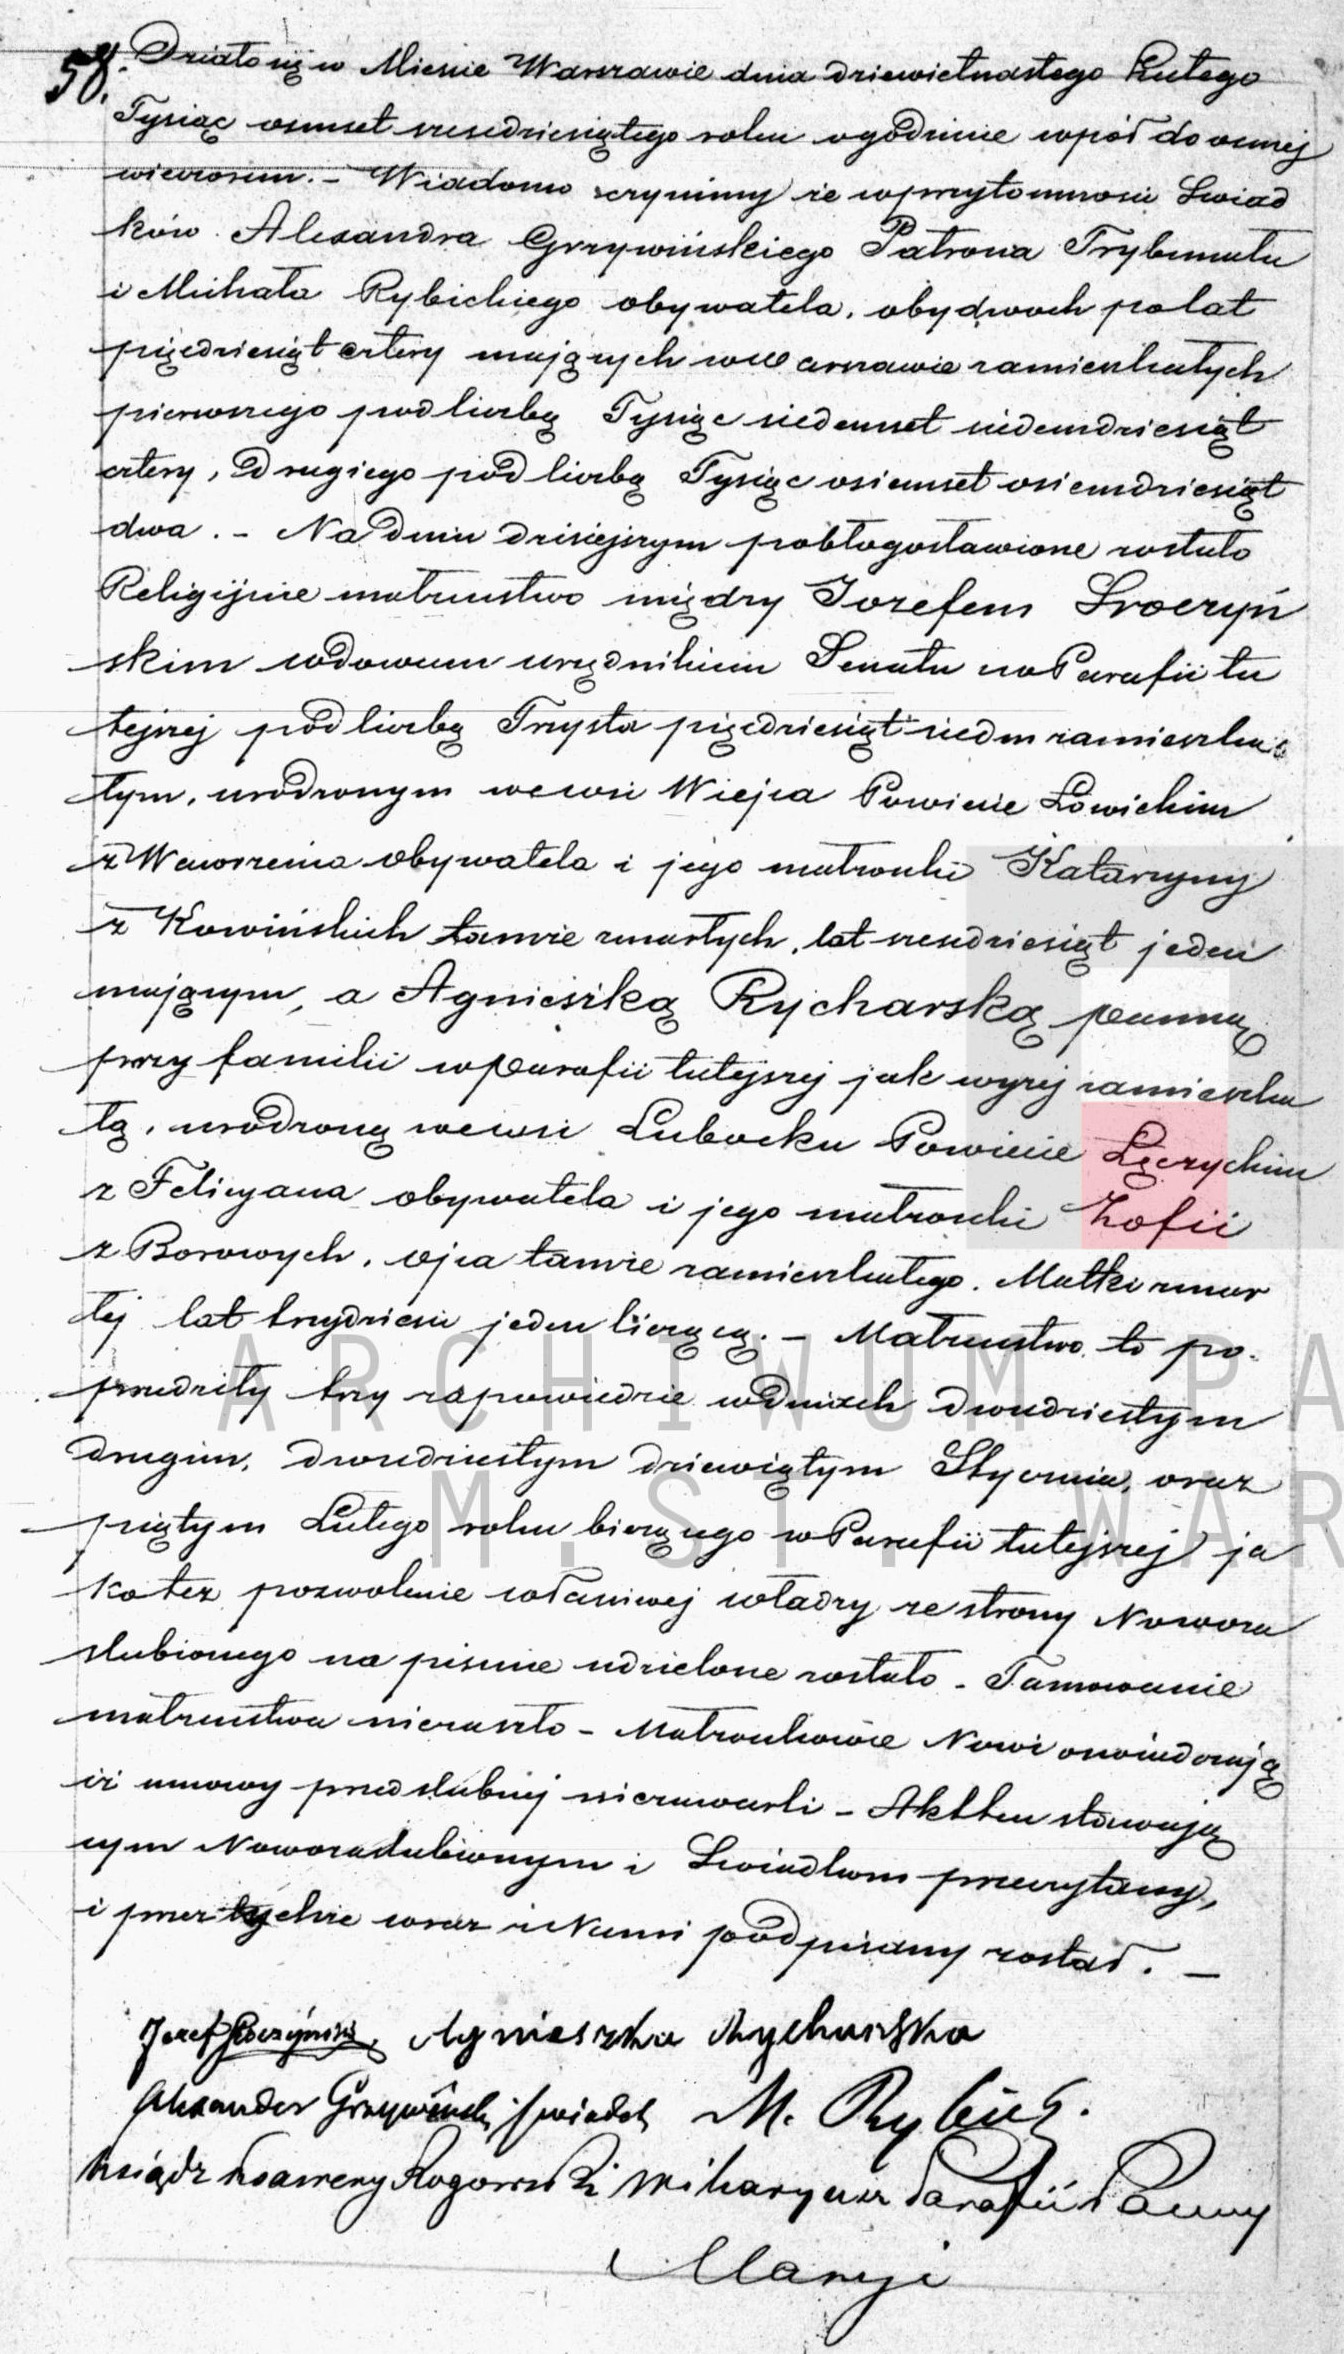 58. Działo się w Mieście Warszawie dnia dziewietnastego Lutego
Tysiąc osmset szesdziesiątego roku o godzinie wpół do osmej
wieczorem. – Wiadomo czynimy że w przytomności Świad
ków Alexandra Grzywińskiego Patrona Trybunału
i Michała Rybickiego obywatela, obydwóch po lat
pięćdziesiąt cztery mających w Warszawie zamieszkałych
pierwszego pod liczbą Tysiąc siedemset siedemdziesiąt
cztery, Drugiego pod liczbą Tysiąc osiemset osiemdziesiąt
dwa. – Na Dniu dzisiejszym pobłogosławione zostało
Religijnie małżeństwo między Józefem Sroczyń
skim wdowcem urzędnikiem Senatu w Parafii tu
tejszej pod liczbą Trzysta pięćdziesiąt siedm zamieszka
łym, urodzonym we wsi Wiejca Powiecie Łowickim
z Wawrzeńca obywatela i jego małżonki Katarzyny
z Kowińskich tamże zmarłych, lat szesdziesiąt jeden
mającym, a Agnieszką Rycharską panną
przy familii w Parafii tutejszej jak wyżej zamieszka
łą, urodzoną we wsi Lubocku Powiecie Łęczyckim
z Felicyana obywatela i jego małżonki Zofii
z Borowych, ojca tamże zamieszkałego. Matki zmar
łej lat trzydzieści jeden liczącą. – Małżeństwo to po
przedziły trzy zapowiedzie w dniach dwudziestym
drugim, dwudziestym dziewiątym Stycznia, oraz
piątym Lutego roku bieżącego w Parafii tutejszej ja
ko też pozwolenie właściwej władzy ze strony Nowoza
ślubionego na piśmie udzielone zostało – Tamowanie
małżeństwa nie zaszło – Małżonkowie Nowi oświadczają
iż umowy przedślubnej nie zawarli – Akt ten stawają
cym Nowozaślubionym i Świadkom przeczytany,
i przez tychże wraz z Nami podpisany został. –
Józef Sroczyński, Agnieszka Rycharska
Alexander Grzywiński świadek M. Rybicki
Ksiądz Ksawery Rogowski Wikaryusz Parafii Panny
Maryi
ARCHIWUM PA
M.ST. WAR